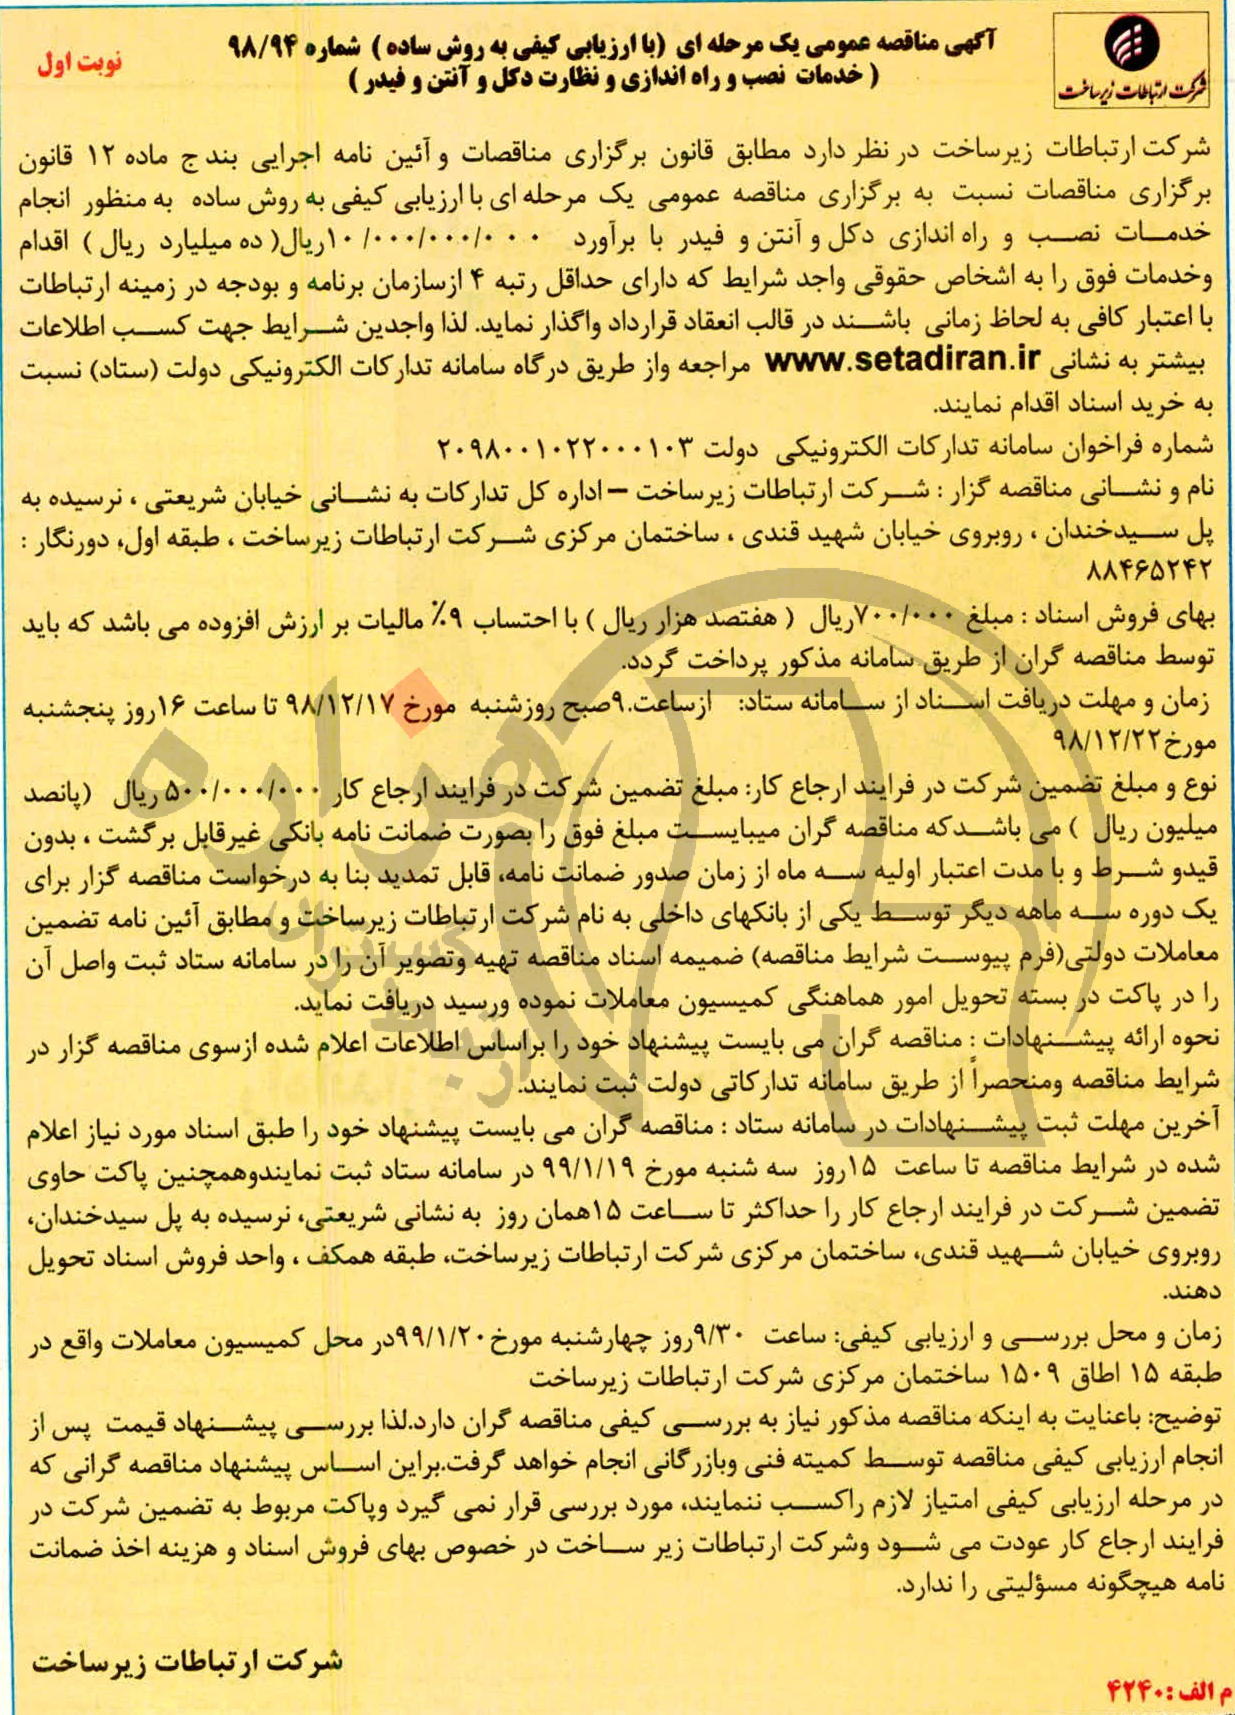 شرکت ارتباطات زیرساخت
آگهی مناقصه عمومی یک مرحله ای (با ارزیابی کیفی به روش ساده ) شماره ۹۸/۹۴
( خدمات نصب و راه اندازی و نظارت دکل و آنتن و فیدر )
نوبت اول
شرکت ارتباطات زیرساخت در نظر دارد مطابق قانون برگزاری مناقصات و آئین نامه اجرایی بند ج ماده ۱۲ قانون
برگزاری مناقصات نسبت به برگزاری مناقصه عمومی یک مرحله ای با ارزیابی کیفی به روش ساده به منظور انجام
خدمات نصب و راه اندازی دکل و آنتن و فیدر با برآورد ۱۰/۰۰۰/۰۰۰/۰۰۰ریال( ده میلیارد ریال ) اقدام
وخدمات فوق را به اشخاص حقوقی واجد شرایط که دارای حداقل رتبه ۴ ازسازمان برنامه و بودجه در زمینه ارتباطات
با اعتبار کافی به لحاظ زمانی باشند در قالب انعقاد قرارداد واگذار نماید. لذا واجدین شرایط جهت کسب اطلاعات
بیشتر به نشانی www.setadiran.ir مراجعه واز طریق درگاه سامانه تدارکات الکترونیکی دولت (ستاد) نسبت
به خرید اسناد اقدام نمایند.
شماره فراخوان سامانه تدارکات الکترونیکی دولت ۲۰۹۸۰۰۱۰۲۲۰۰۰۱۰۳
نام و نشانی مناقصه گزار : شرکت ارتباطات زیرساخت – اداره کل تدارکات به نشانی خیابان شریعتی ، نرسیده به
پل سیدخندان ، روبروی خیابان شهید قندی ، ساختمان مرکزی شرکت ارتباطات زیرساخت ، طبقه اول، دورنگار :
۸۸۴۶۵۲۴۲
بهای فروش اسناد : مبلغ ۷۰۰/۰۰۰ریال ( هفتصد هزار ریال ) با احتساب ۹٪ مالیات بر ارزش افزوده می باشد که باید
توسط مناقصه گران از طریق سامانه مذکور پرداخت گردد.
زمان و مهلت دریافت اسناد از سامانه ستاد: ازساعت.۹صبح روزشنبه مورخ ۹۸/۱۲/۱۷ تا ساعت ۱۶روز پنجشنبه
مورخ۹۸/۱۲/۲۲
نوع و مبلغ تضمین شرکت در فرایند ارجاع کار: مبلغ تضمین شرکت در فرایند ارجاع کار ۵۰۰/۰۰۰/۰۰۰ ریال (پانصد
میلیون ریال ) می باشدکه مناقصه گران میبایست مبلغ فوق را بصورت ضمانت نامه بانکی غیرقابل برگشت ، بدون
قیدو شرط و با مدت اعتبار اولیه سه ماه از زمان صدور ضمانت نامه، قابل تمدید بنا به درخواست مناقصه گزار برای
یک دوره سه ماهه دیگر توسط یکی از بانکهای داخلی به نام شرکت ارتباطات زیرساخت و مطابق آئین نامه تضمین
معاملات دولتی(فرم پیوست شرایط مناقصه) ضمیمه اسناد مناقصه تهیه وتصویر آن را در سامانه ستاد ثبت واصل آن
را در پاکت در بسته تحویل امور هماهنگی کمیسیون معاملات نموده ورسید دریافت نماید.
نحوه ارائه پیشنهادات : مناقصه گران می بایست پیشنهاد خود را براساس اطلاعات اعلام شده ازسوی مناقصه گزار در
شرایط مناقصه ومنحصراً از طریق سامانه تدارکاتی دولت ثبت نمایند.
آخرین مهلت ثبت پیشنهادات در سامانه ستاد : مناقصه گران می بایست پیشنهاد خود را طبق اسناد مورد نیاز اعلام
شده در شرایط مناقصه تا ساعت ۱۵روز سه شنبه مورخ ۹۹/۱/۱۹ در سامانه ستاد ثبت نمایندوهمچنین پاکت حاوی
تضمین شرکت در فرایند ارجاع کار را حداکثر تا ساعت ۱۵همان روز به نشانی شریعتی، نرسیده به پل سیدخندان،
روبروی خیابان شهید قندی، ساختمان مرکزی شرکت ارتباطات زیرساخت، طبقه همکف ، واحد فروش اسناد تحویل
دهند.
زمان و محل بررسی و ارزیابی کیفی: ساعت ۹/۳۰روز چهارشنبه مورخ۹۹/۱/۲۰در محل کمیسیون معاملات واقع در
طبقه ۱۵ اطاق ۱۵۰۹ ساختمان مرکزی شرکت ارتباطات زیرساخت
توضیح: باعنایت به اینکه مناقصه مذکور نیاز به بررسی کیفی مناقصه گران دارد.لذا بررسی پیشنهاد قیمت پس از
انجام ارزیابی کیفی مناقصه توسط کمیته فنی وبازرگانی انجام خواهد گرفت.براین اساس پیشنهاد مناقصه گرانی که
در مرحله ارزیابی کیفی امتیاز لازم راکسب ننمایند، مورد بررسی قرار نمی گیرد وپاکت مربوط به تضمین شرکت در
فرایند ارجاع کار عودت می شود وشرکت ارتباطات زیر ساخت در خصوص بهای فروش اسناد و هزینه اخذ ضمانت
نامه هیچگونه مسؤلیتی را ندارد.
شرکت ارتباطات زیرساخت
م الف :۴۲۴۰
هزاره